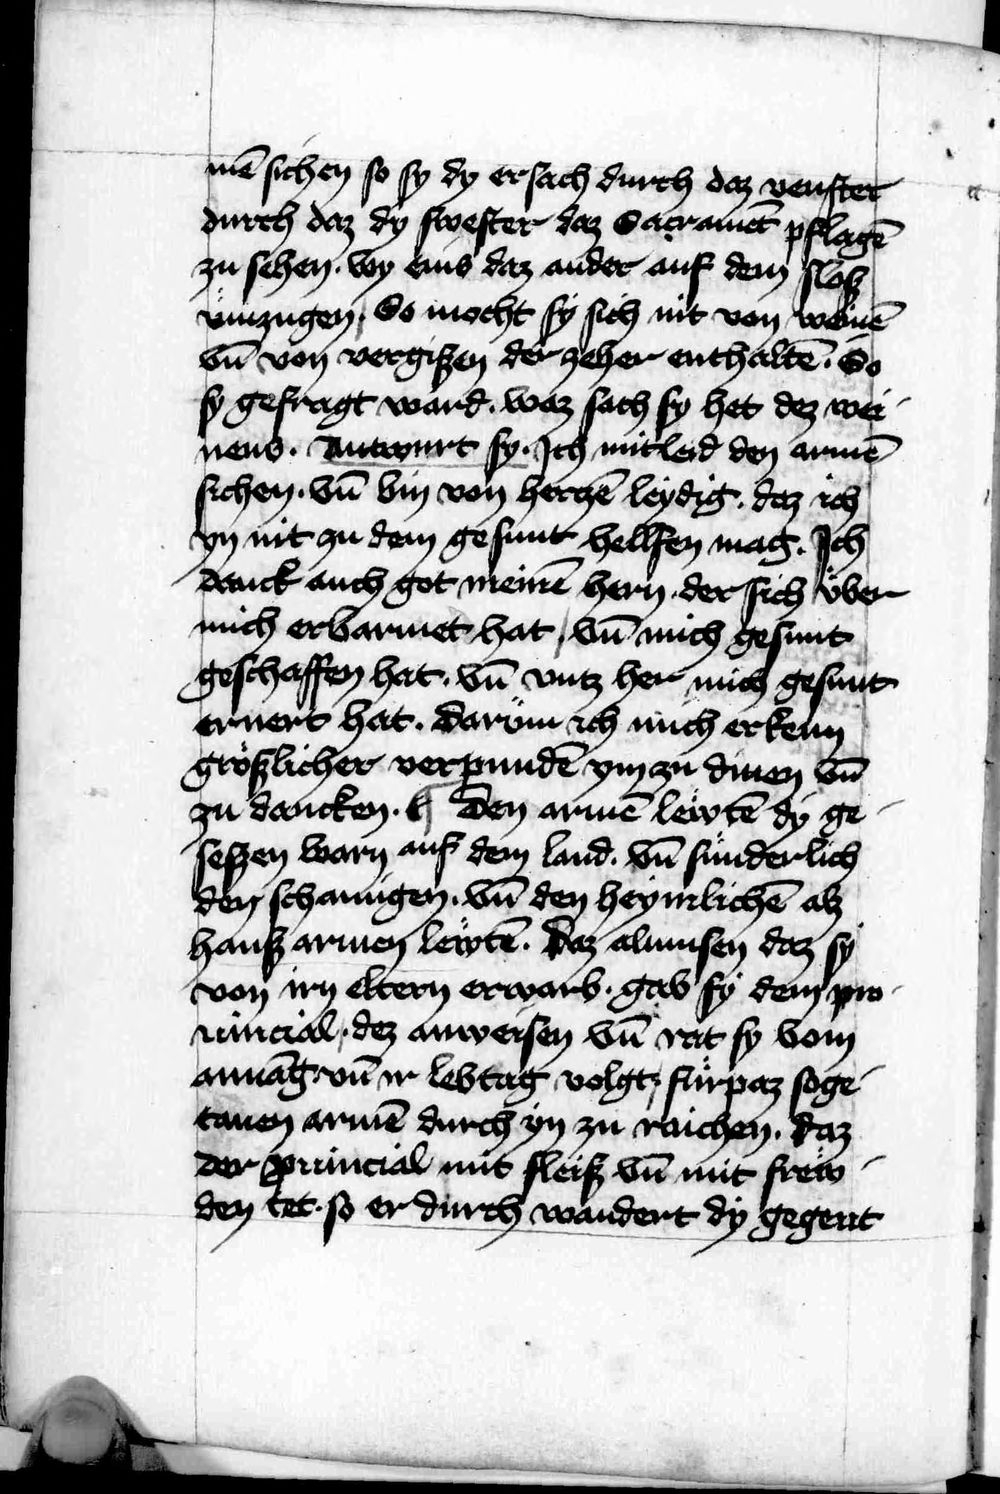 mē sichen so sy dy ersach durch daz venster
durch daz dy swester daz Sacramēt pflagē
zu sehen. wy eins daz ander auf dem sloß
vmzugen. So mocht sy sich nit von weinē
vn̄ von vergißen der zeher enthaltē. So
sy gefragt ward. waz sach sy het dez wei-
nens. Antwurt sy. Ich mitleid den armē
sichen. vn̄ bin von hertzē leydig. daz ich
yn nit zu dem gesunt hellfen mag. Ich
danck auch got meinē hern. der sich über
mich erbarmet hat, vn̄ mich gesunt
geschaffen hat. vn̄ vntz her mich gesunt
ernert hat. darüm ich mich erkenn
größlicher verpundē ym zu dinen vn̄
zu dancken. Den armē lewtē dy ge-
seßen warn auf dem land. vn̄ sunderlich
den schamigen. vn̄ den heymlichē alz
hauß armen lewtē. Daz almusen daz sy
von irn eltern erwarb. gab sy dem pro-
uincial. dez anweisen vn̄ rat sy vom
anuāg vn̄ ir lebtag volgt, fürpaz soge-
tanen armē durch yn zu raichen. daz
der prouincial mit fleiß vn̄ mit frew-
den tet. so er durch wandert dy gegent